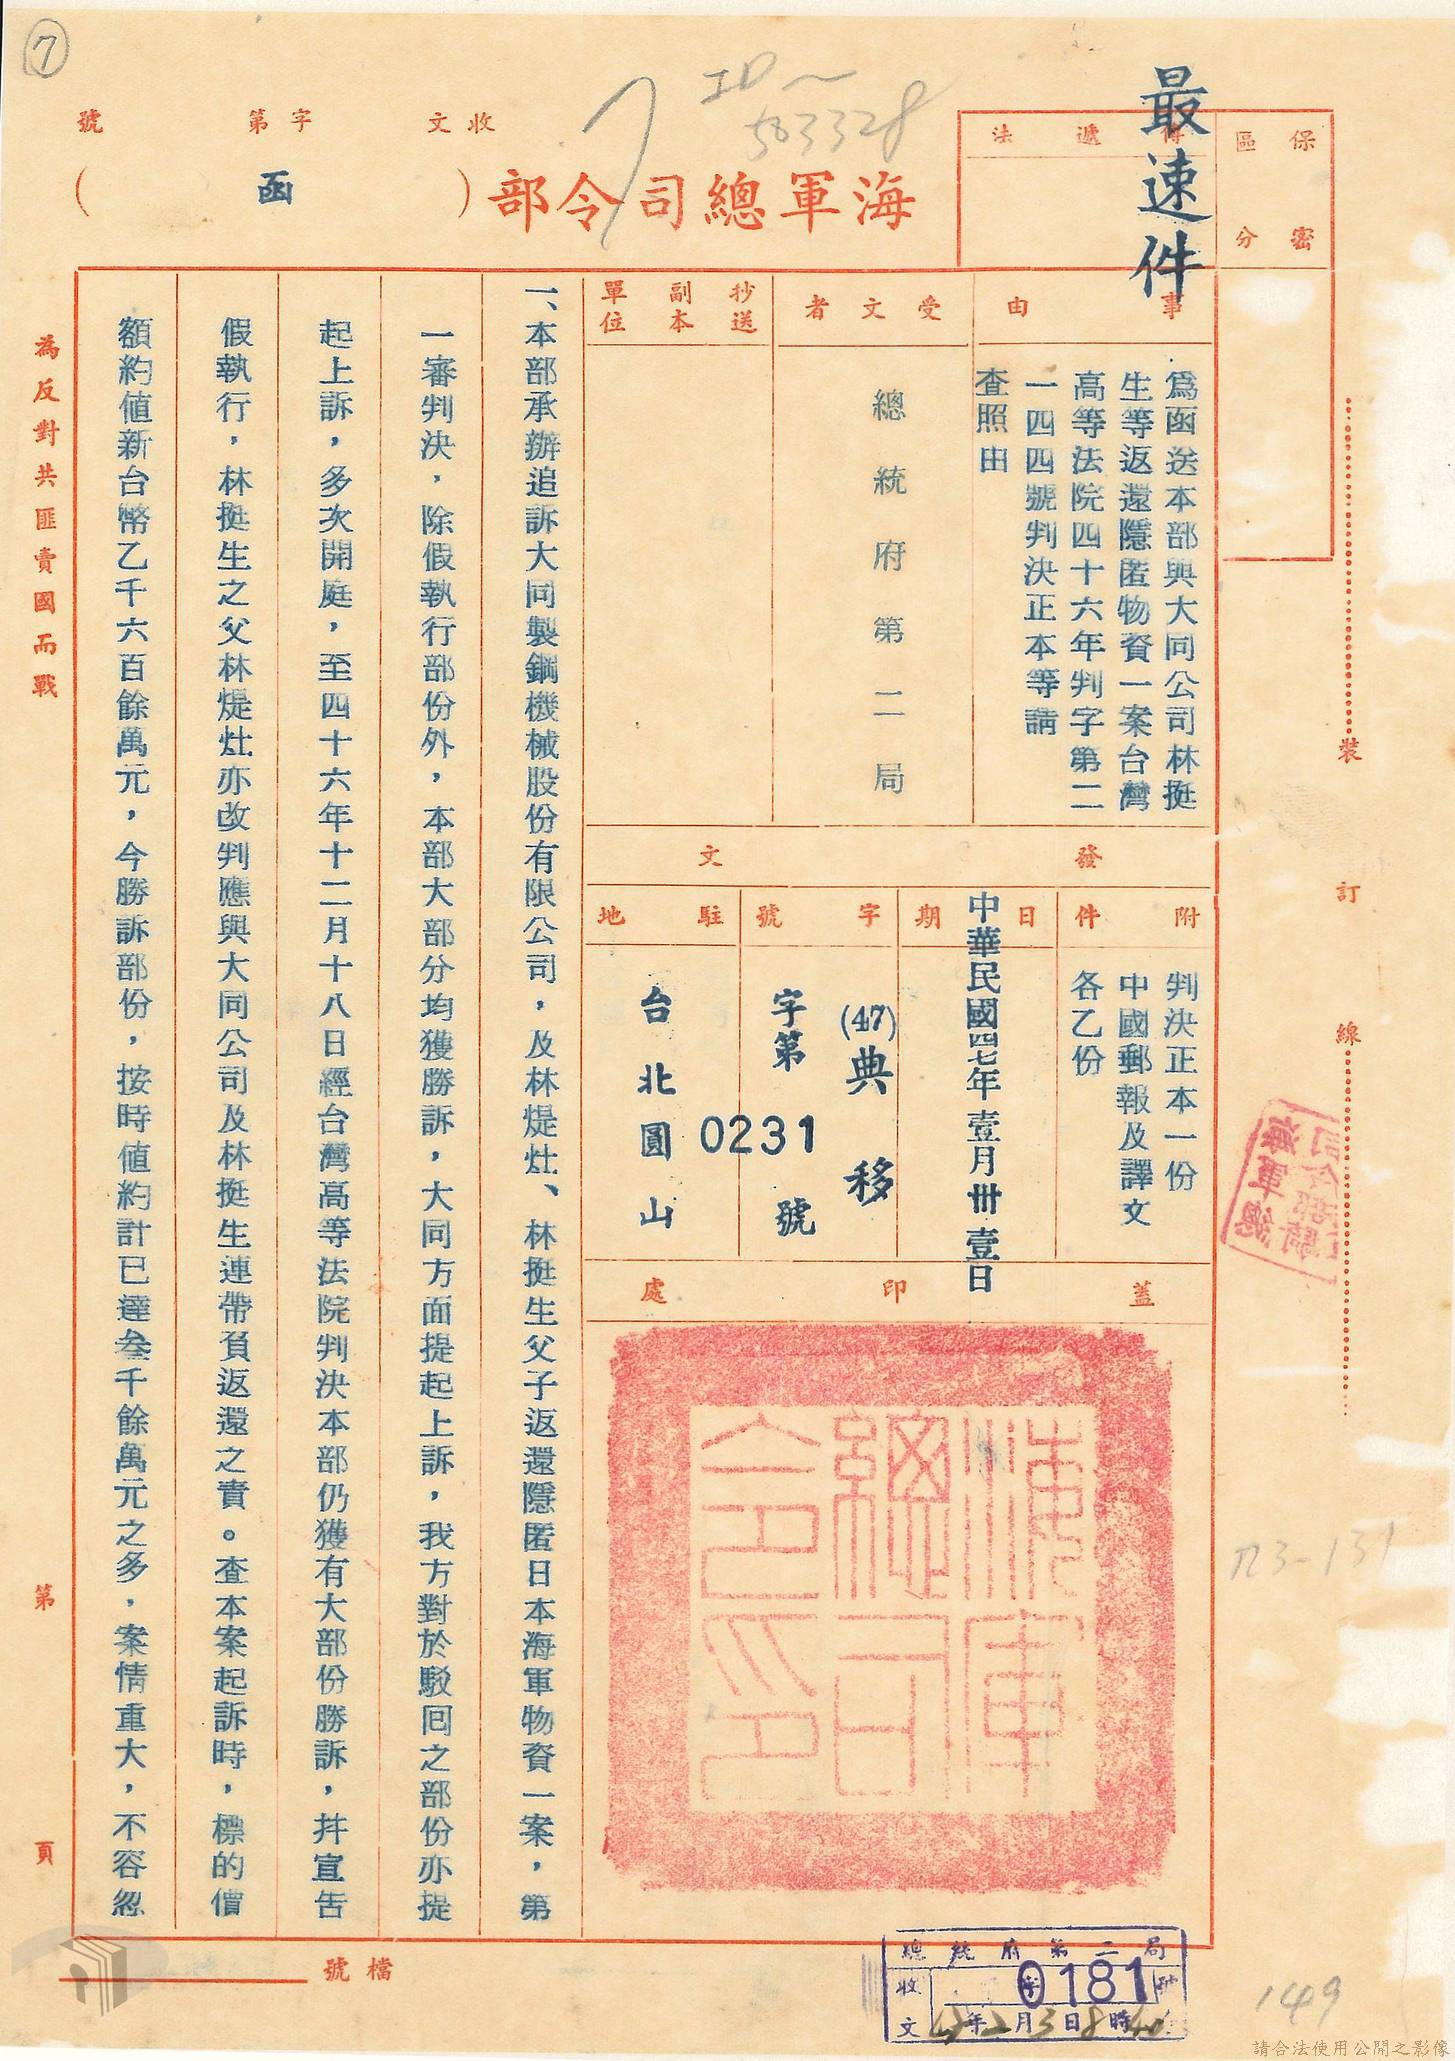 ⑦
503328
收文 字第 號
海軍總司令部(函)
最速件
保密區分
傳遞法
事由
為函送本部與大同公司林挺
生等返還隱匿物資一案台灣
高等法院四十六年判字第二
一四四號判決正本等請
查照由
受文者
總統府第二局
抄送副本單位
發文
附件
判決正本一份
中國郵報及譯文
各乙份
日期
中華民國四七年壹月卅壹日
字號
(47)典移
字第0231號
駐地
台北圓山
蓋印處
海軍總司令印
一、本部承辦追訴大同製鋼機械股份有限公司,及林煶灶、林挺生父子返還隱匿日本海軍物資一案,第
一審判決,除假執行部份外,本部大部分均獲勝訴,大同方面提起上訴,我方對於駁回之部份亦提
起上訴,多次開庭,至四十六年十二月十八日經台灣高等法院判決本部仍獲有大部份勝訴,幷宣告
假執行,林挺生之父林煶灶亦改判應與大同公司及林挺生連帶負返還之責。查本案起訴時,標的價
額約值新台幣乙千六百餘萬元,今勝訴部份,按時值約計已達叁千餘萬元之多,案情重大,不容忽
裝訂線
為反對共匪賣國而戰
第 頁
檔號
總統府第二局
收文 字0181號
47年2月3日8時40
713-131
149
請合法使用公開之影像